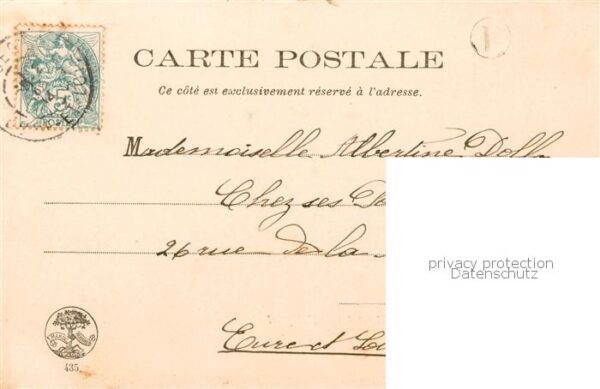 CARTE POSTALE
Ce côté est exclusivement réservé à l'adresse.
Mademoiselle Albertine
Chez ses
26 rue de la
privacy protection
Datenschutz
Eure et
435